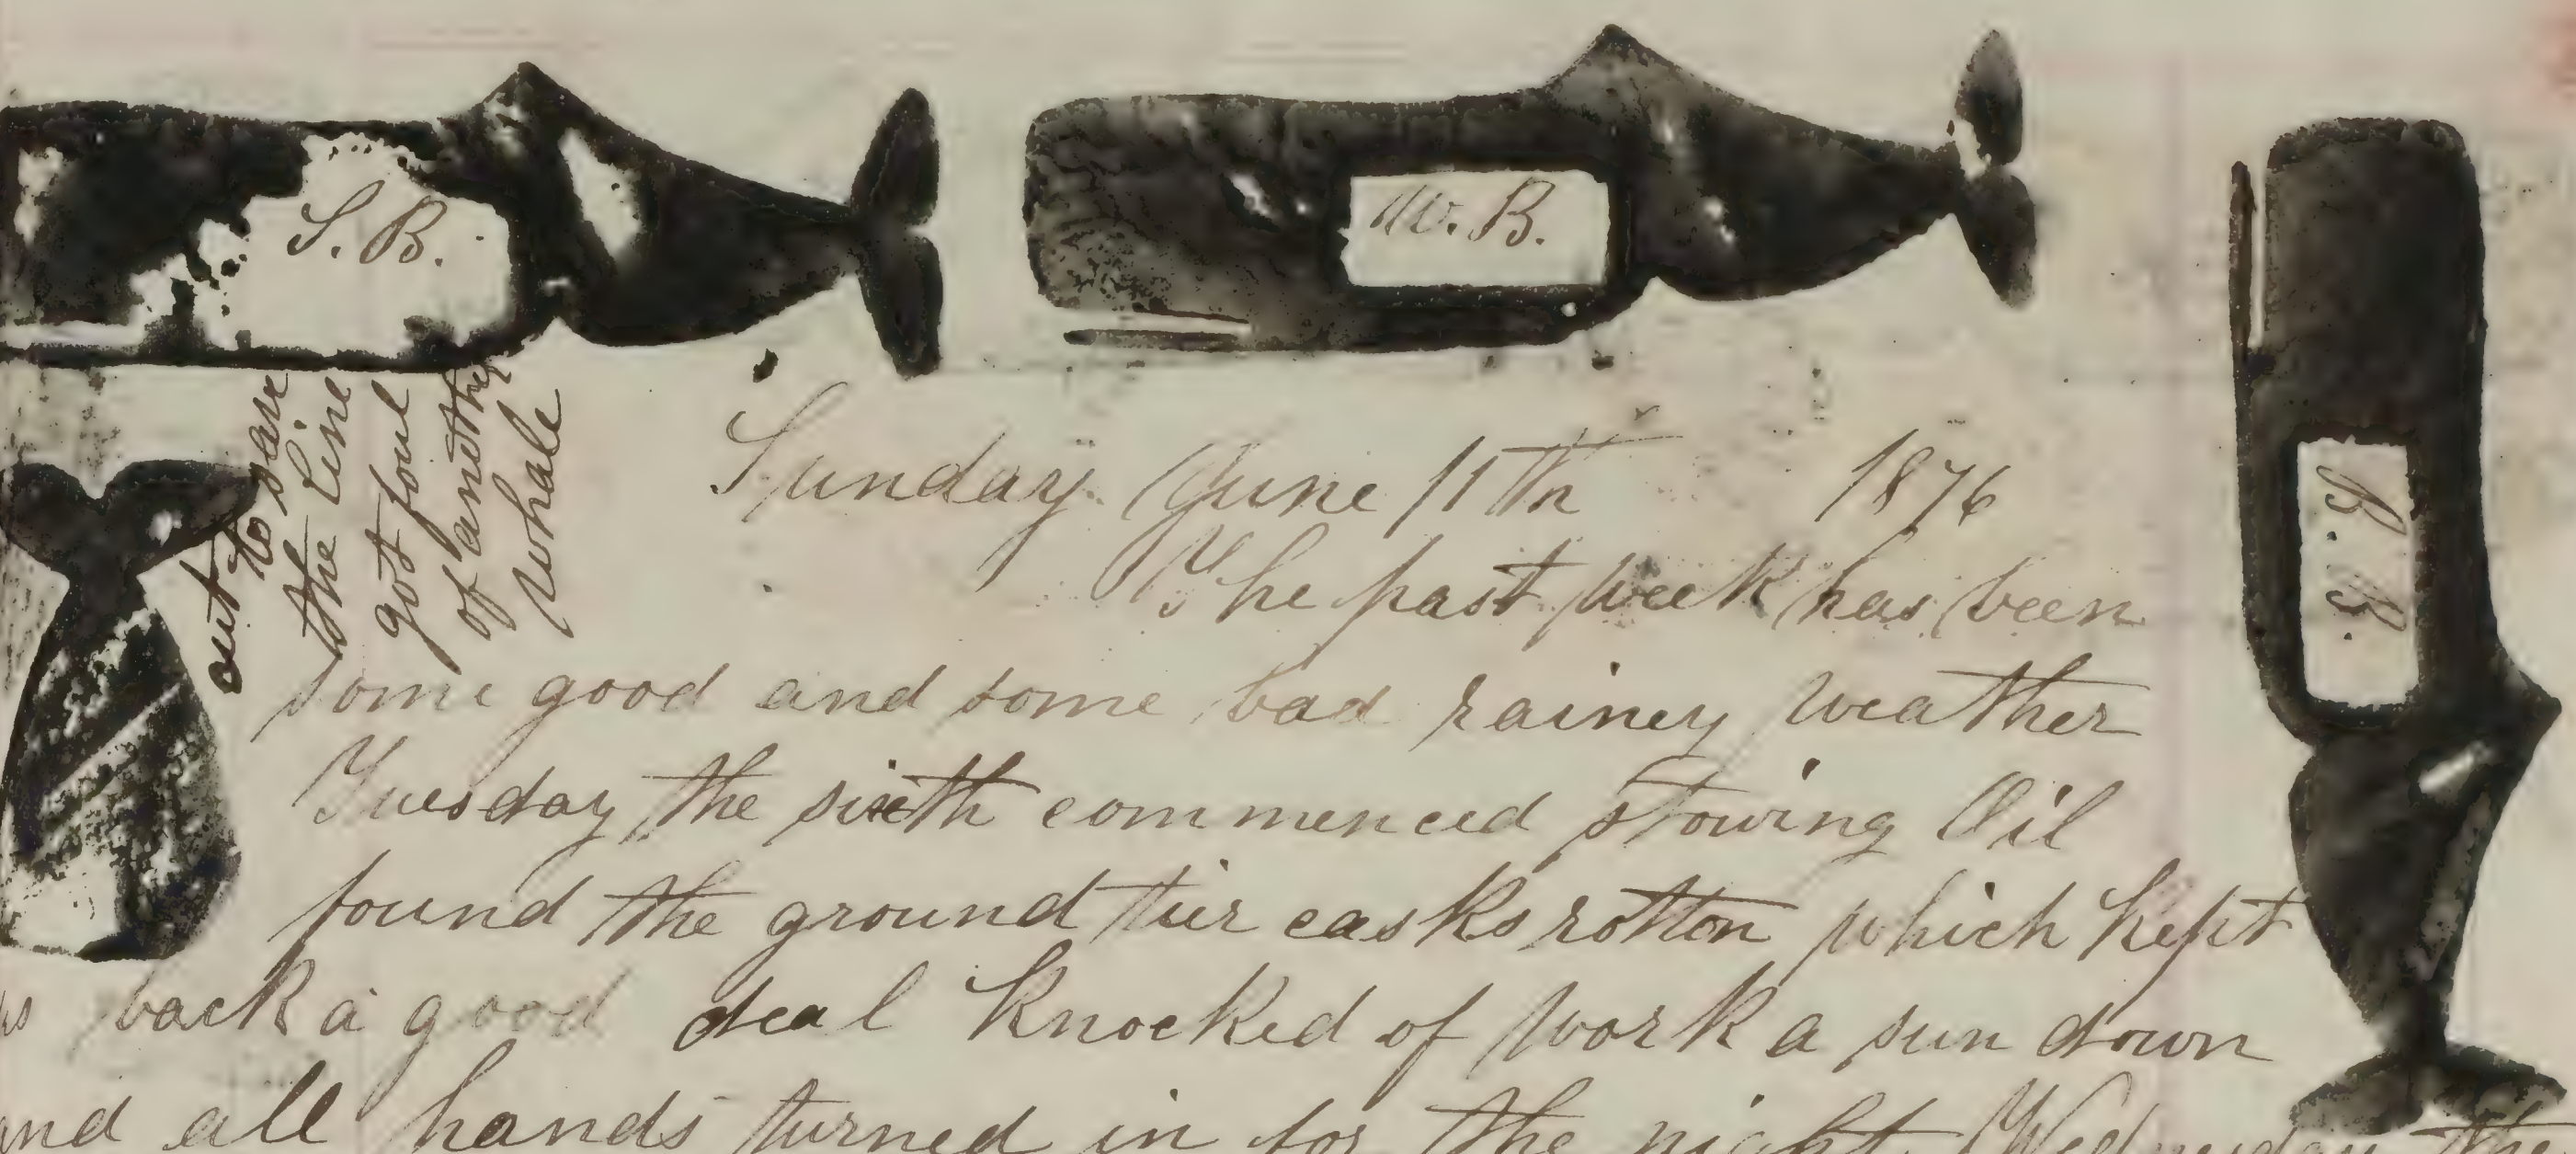 S. B.
W. B.
B. B.
cut to save
the line
got foul
of another
whale
Sunday June 11th 1876
The past week has been
some good and some bad rainey weather
Tuesday the sixth commenced stowing Oil
found the ground tier casks rotton which kept
back a good deal knocked of work a sun down
all hands turned in for the night Wednesday the